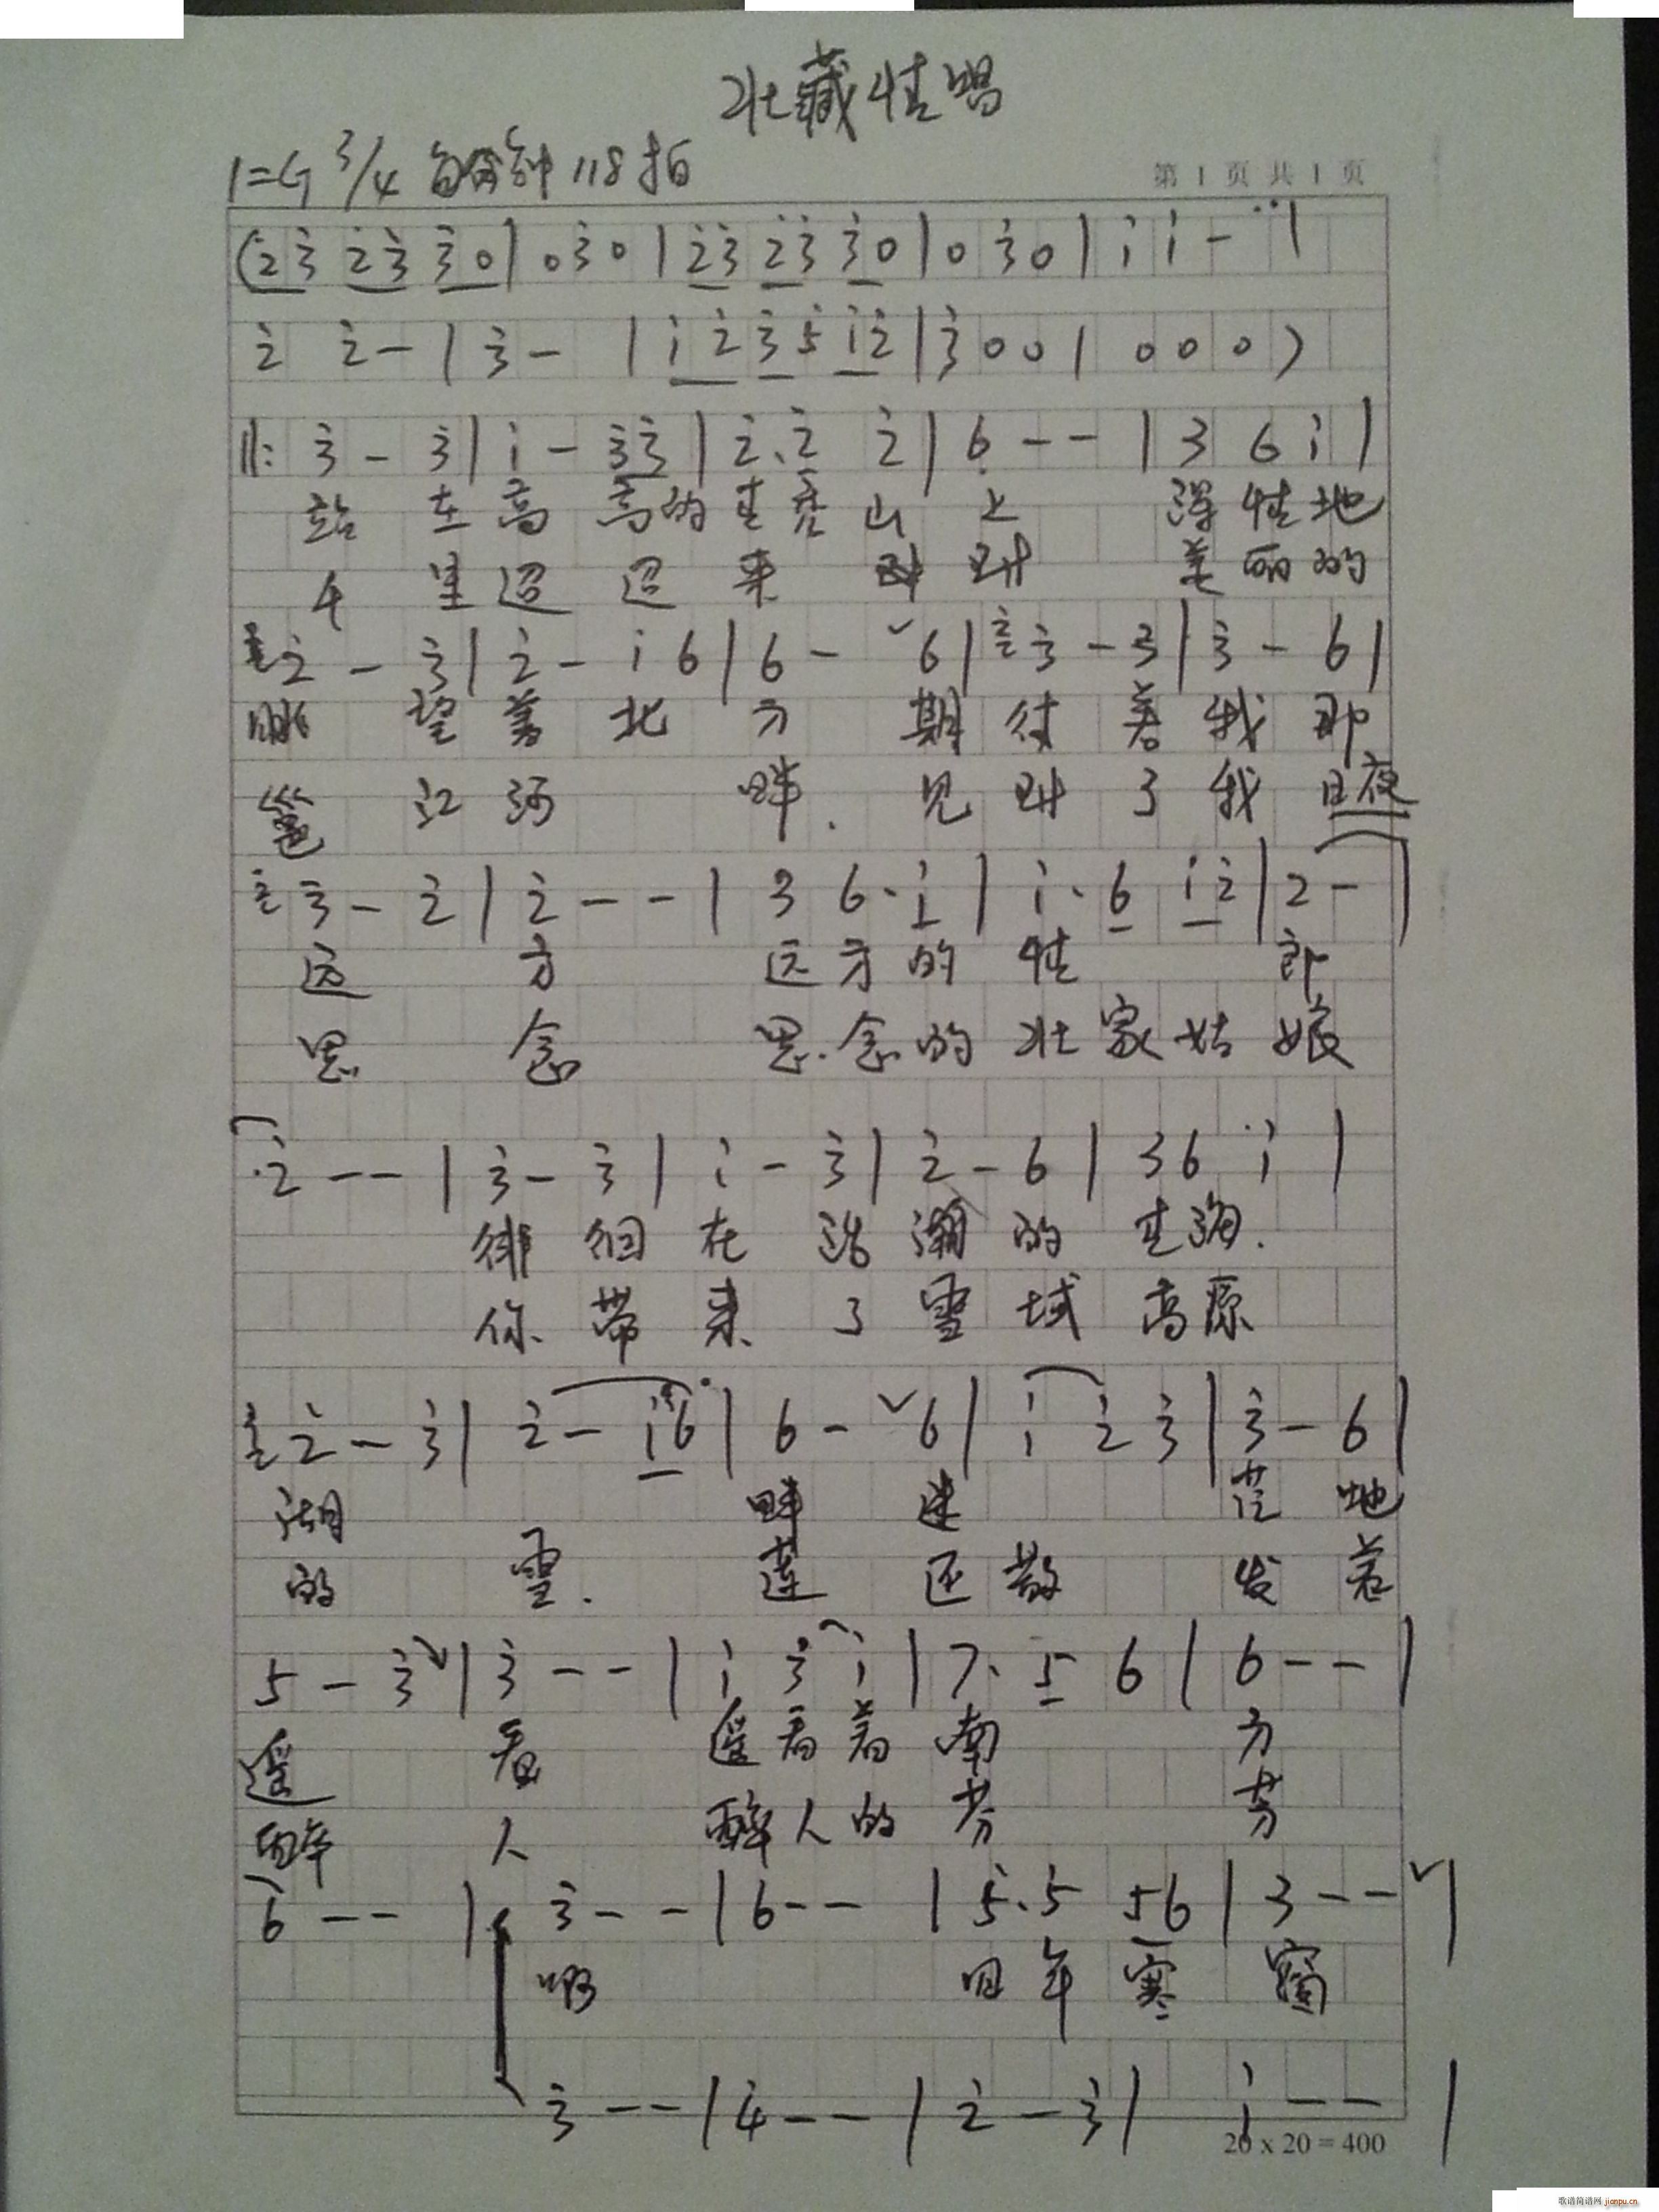 壮藏情唱
1=G 3/4 每分钟118拍
第 1 页 共 1 页
(2̇3̇ 2̇3̇ 3̇0|03̇0|2̇3̇ 2̇3̇ 3̇0|03̇0|1̇ 1̇ -|
2̇ 2̇ -|3̇ -|1̇2̇ 3̇5 1̇2̇|3̇00|000)
‖: 3̇ - 3̇|1̇ - 3̇3̇|2̇. 2̇ 2̇|6 - -|3 6 1̇|
站 在 高 高 的 山 上 深 情 地
千 里 迢 迢 来 美 丽 的
2̇ - 3̇|2̇ - 1̇ 6|6 - ˇ6|3̇ - 3̇|3̇ - 6|
眺 望 着 北 方 期 待 着 我 那
邕 江 河 畔. 见 了 我 日夜
3̇ - 2̇|2̇ - -|3 6. 1̇|1̇. 6 1̇2̇|2 -|
远 方 远 方 的 情 郎
思 念 思 念 的 壮 家 姑 娘
2̇ - -|3̇ - 3̇|1̇ - 3̇|2̇ - 6|3 6 1̇|
徘 徊 在 浩 瀚 的
你 带 来 了 雪 域 高 原
2̇ - 3̇|2̇ - 1̇6|6 - ˇ6|1̇ 2̇ 3̇|3̇ - 6|
湖 畔 迷 茫 地
的 雪. 莲 还 散 发 着
5 - 3̇|3̇ - -|1̇ 3̇ 1̇|7. 5 6|6 - -|
遥 看 遥 看 着 南 方
醉 人 醉 人 的 芬 芳
6 - -|3̇ - -|6 - -|5. 5 56|3 - -ˇ|
啊 年 寒 窗
3̇ - -|4̇ - -|2̇ - 3̇|1̇ - -|
20 x 20 = 400
歌谱简谱网 jianpu.cn